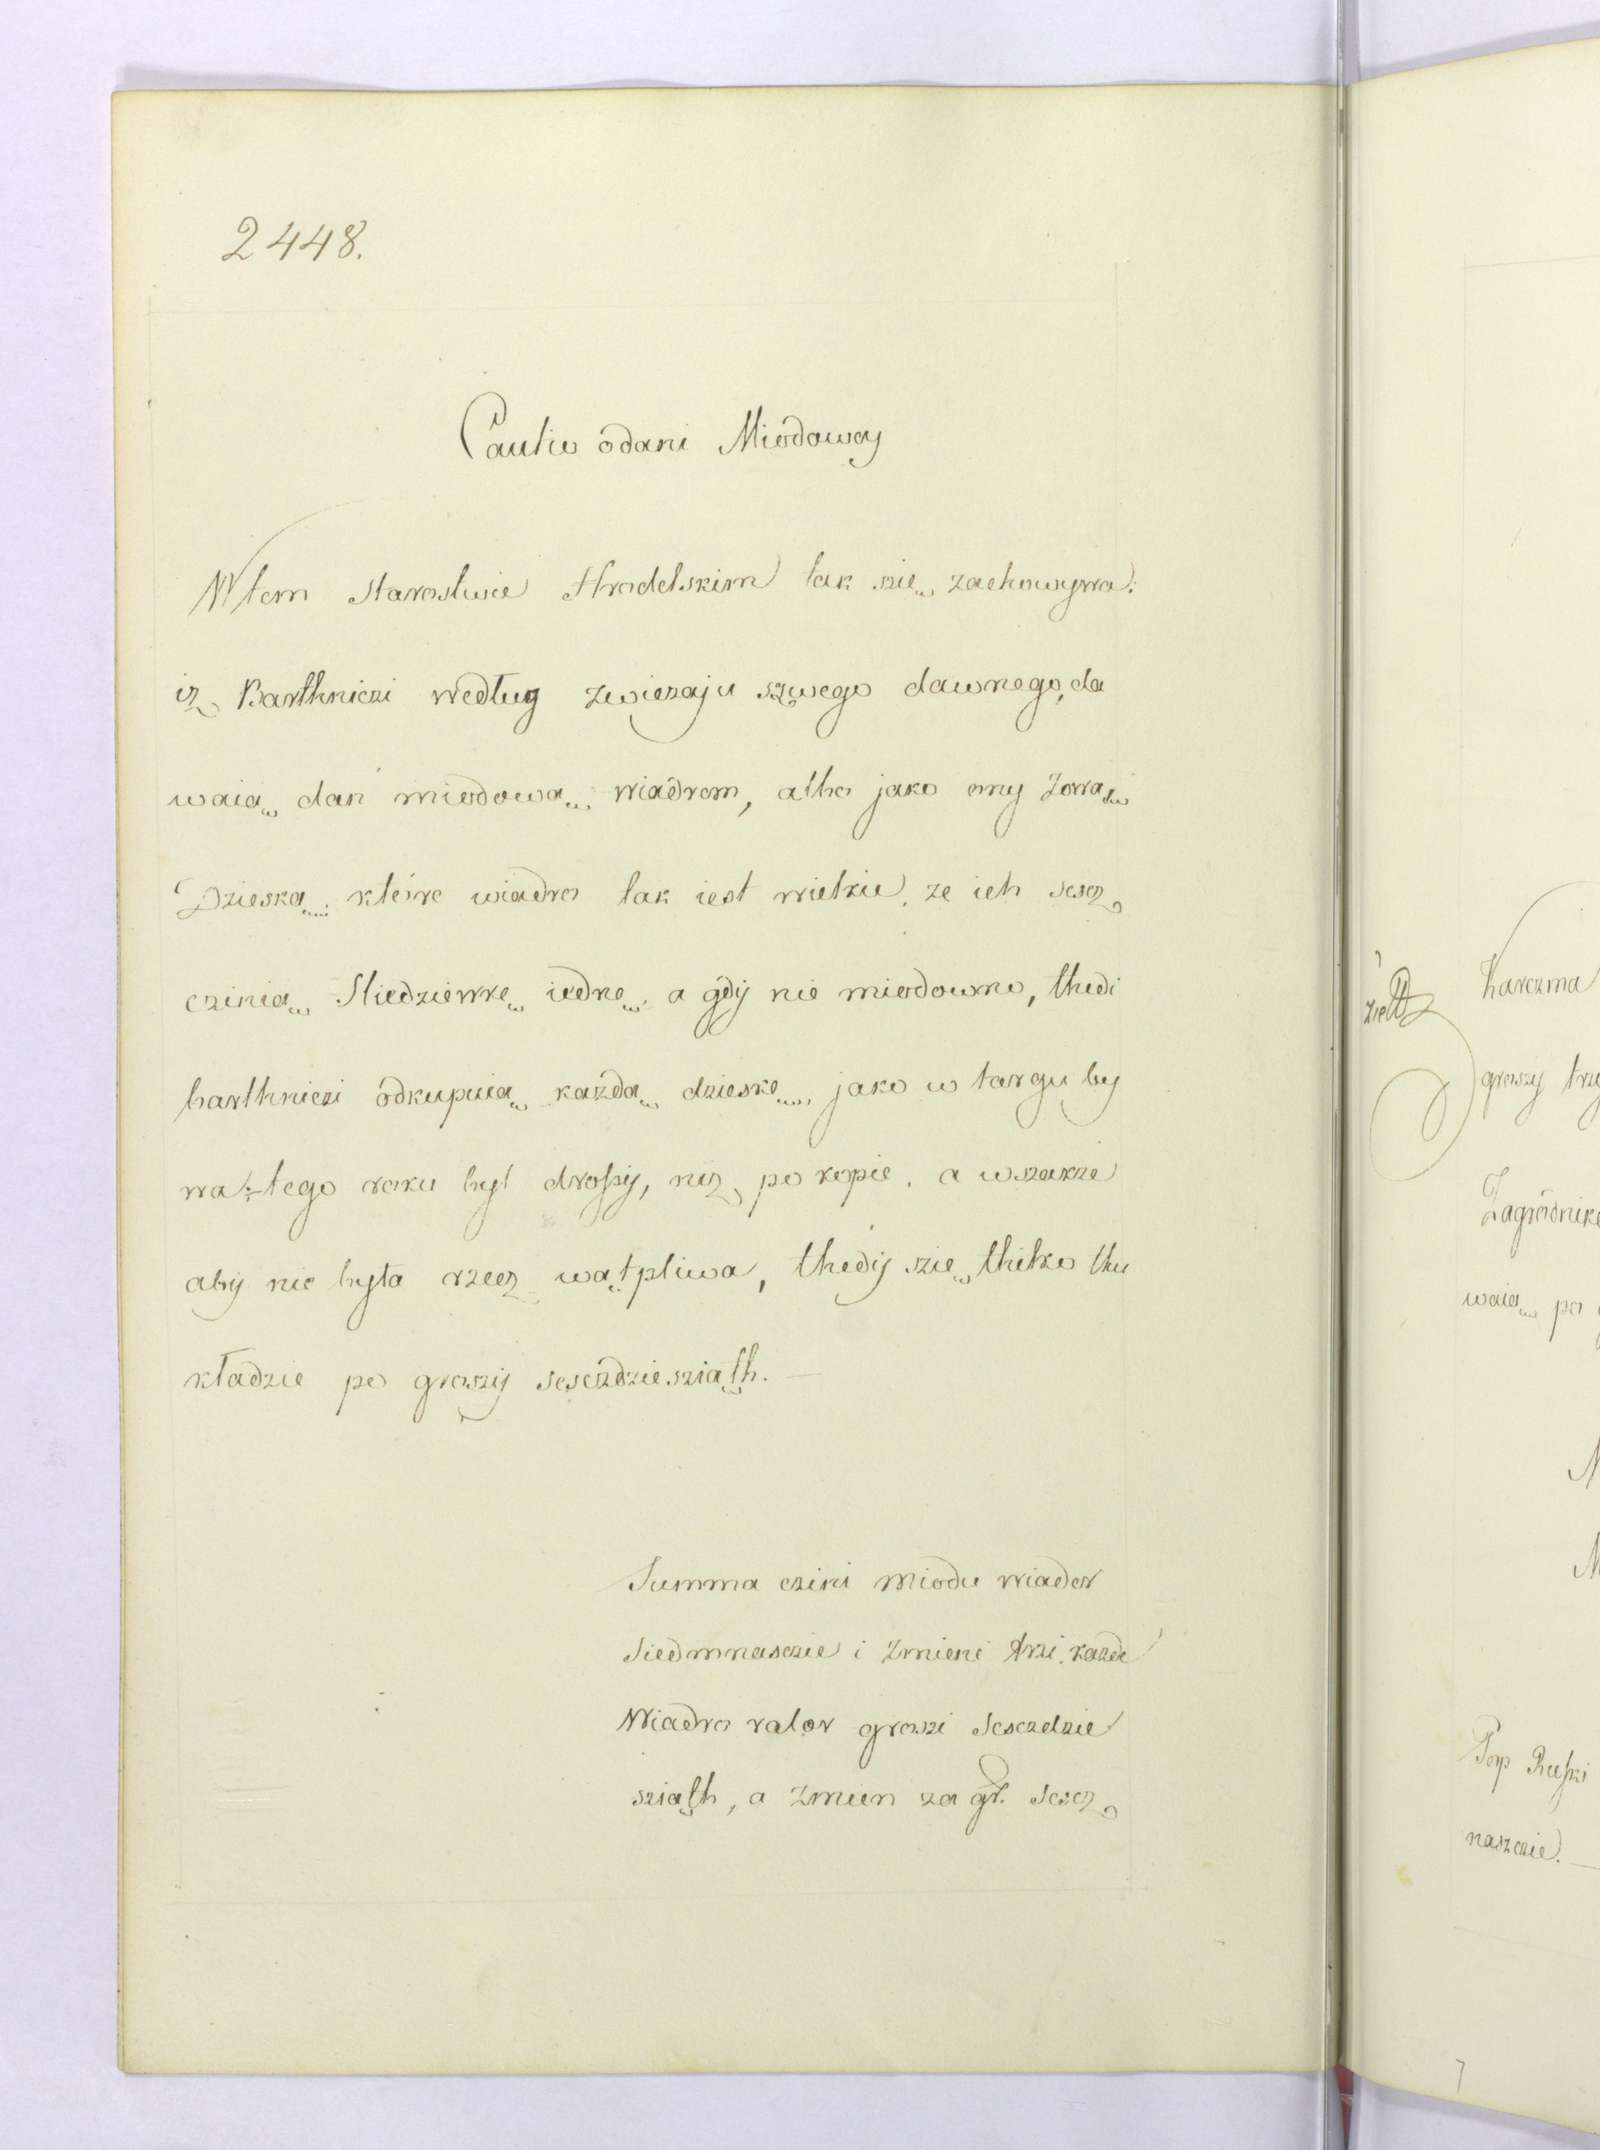 2448.
Cautio ódani Miódowey
W tem Starostwie Hrodelskim tak szię zachowywa:
iz Barthniczi według zwiczaju szwego dawnego, da
waią dań miodową wiadrem, albo jako ony zową
Dzieską, które wiadro tak iest wielkie, ze ich sescz
czinią Sliedziewkę iednę, a gdÿ nie miodowno, thedi
barthniczi ódkupuią każdą dzieskę, jako w targu by
wa: tego roku był droszÿ, niz po kopie, a wszakze
abÿ nie była rzecz wątpliwa, thedÿ szię thilko thu
kładzie po groszÿ sesczdziesziąth. —
Summa czini Miodu wiader
Siedmnasczie i Zmieni trzi, kazde
Wiadro valor groszi Sesczdzie
sziąth, a Zmien za gr. Sescz
zielt
Karczma
groszy trzy
Zagródnik
waią po
Pop Ruski
naszczie. —